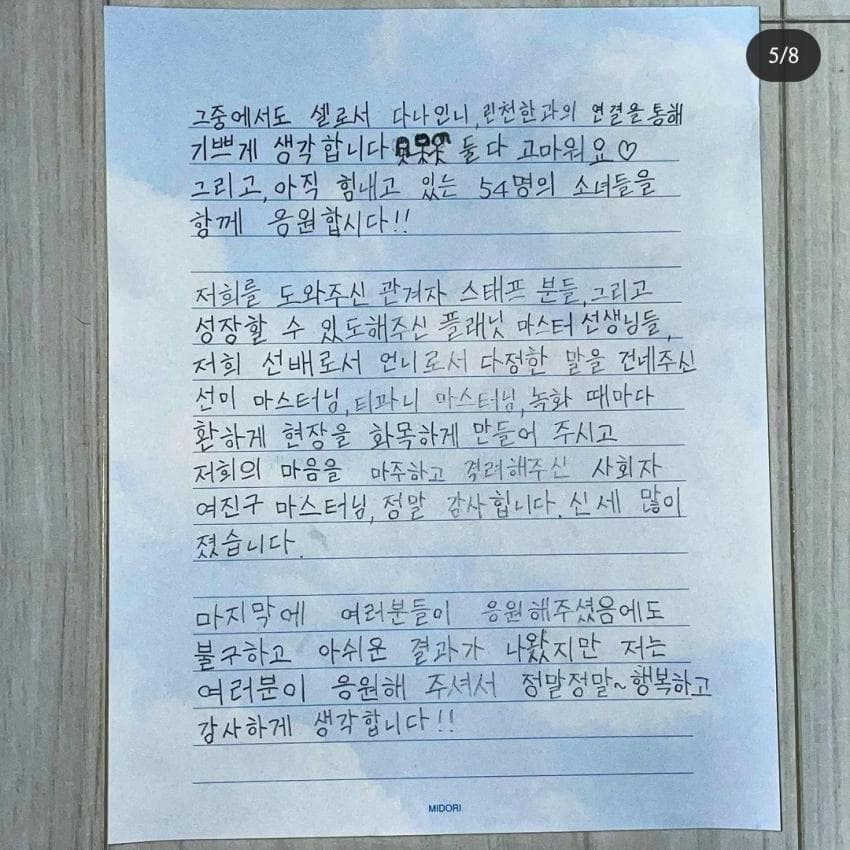 5/8
그중에서도 셀로서 다나언니, 린천한과의 연결을 통해
기쁘게 생각합니다 둘 다 고마워요♡
그리고, 아직 힘내고 있는 54명의 소녀들을
함께 응원합시다!!
저희를 도와주신 관겨자 스태프 분들, 그리고
성장할 수 있도해주신 플래닛 마스터 선생님들,
저희 선배로서 언니로서 다정한 말을 건네주신
선미 마스터님, 티파니 마스터님, 녹화 때마다
환하게 현장을 화목하게 만들어 주시고
저희의 마음을 마주하고 격려해주신 사회자
여진구 마스터님, 정말 감사힙니다. 신세 많이
졌습니다.
마지막에 여러분들이 응원해주셨음에도
불구하고 아쉬운 결과가 나왔지만 저는
여러분이 응원해 주셔서 정말정말~ 행복하고
감사하게 생각합니다!!
MIDORI